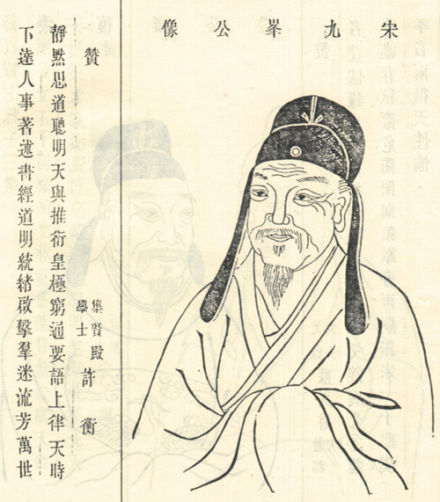 宋九峯公像
贊
集賢殿學士許衡
靜黙思道聰明天與推衍皇極窮通要語上律天時
下達人事著述書經道明統結啟擊羣迷流芳萬世